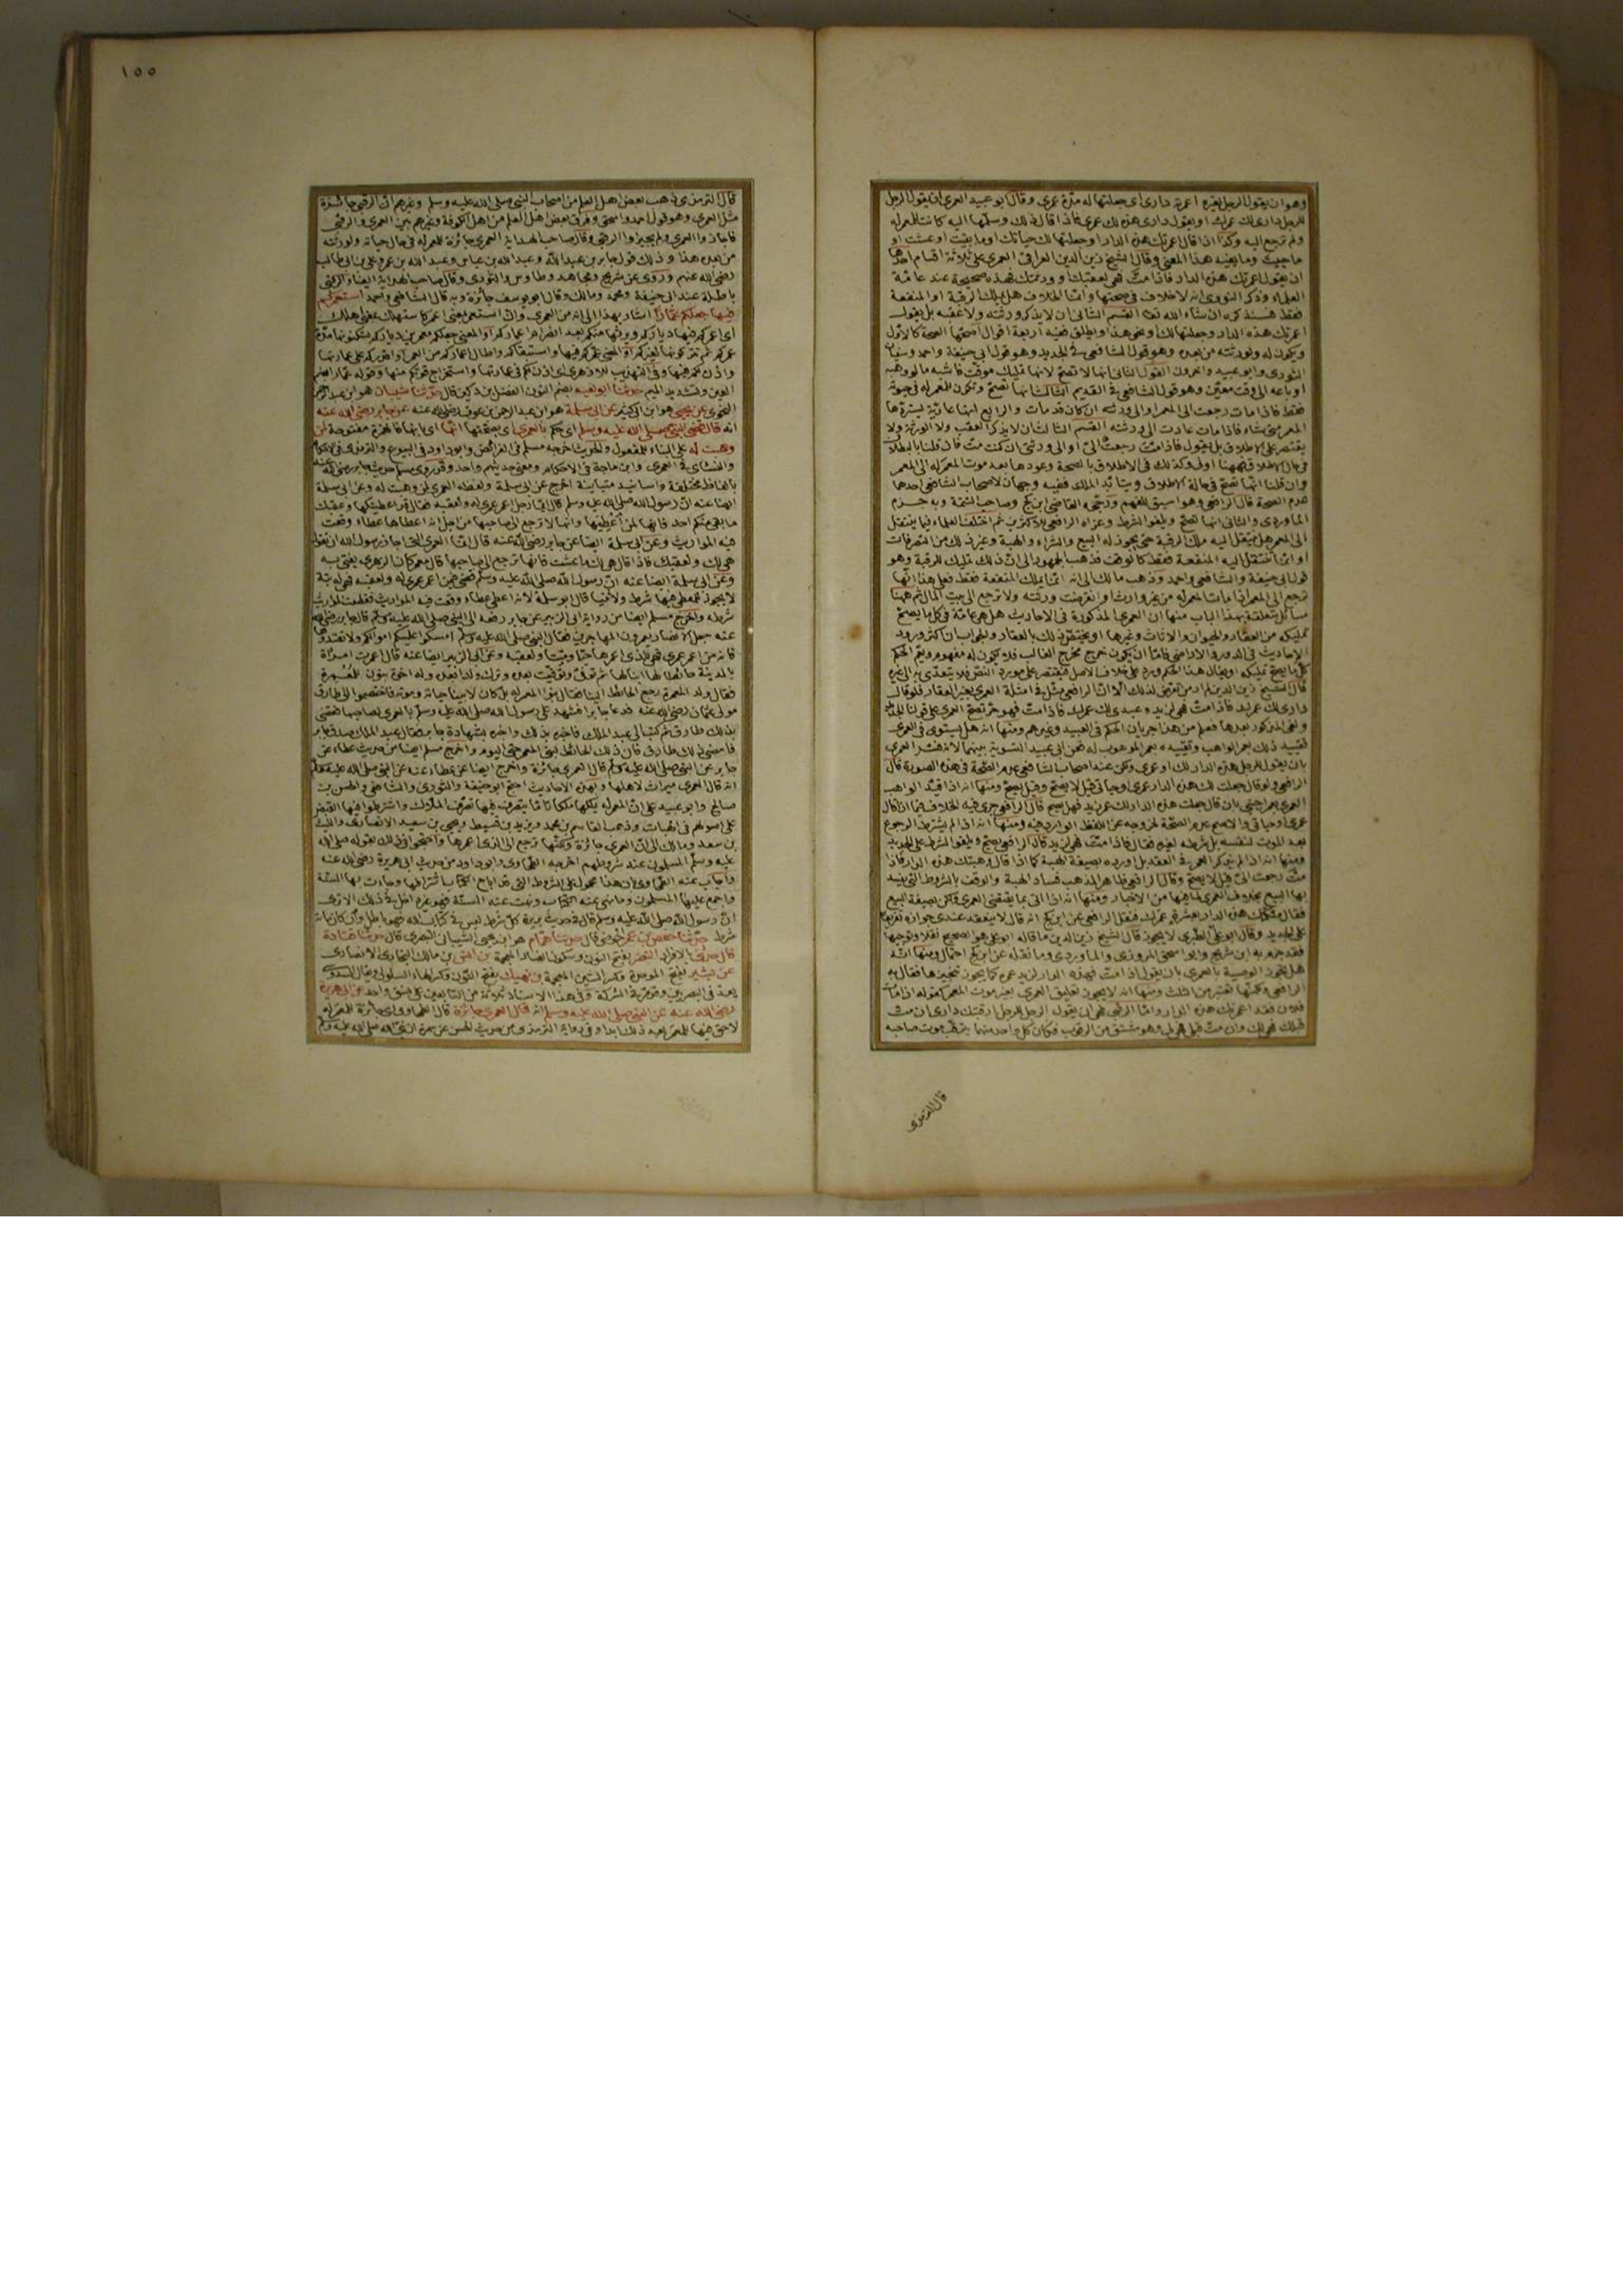 وهو ان يقول الرجل لغيره اعمرته داري اى جعلتها له مدة عمرى وقال ابو عبيد العمرى ان يقول الرجل
للرجل دارى لك عمرك او يقول دارى هذه لك عمرى فاذا قال ذلك وسلمها اليه كانت للمعمر له
ولم ترجع اليه وكذا اذا قال اعمرتك هذه الدار او جعلتها لك حياتك او ما بقيت او عشت او
ما حييت وما يفيد هذا المعنى وقال الشيخ زين الدين العراقى العمرى على ثلاثة اقسام احدها
ان يقول اعمرتك هذه الدار فاذا مت فهى لعقبك او ورثتك فهذه صحيحة عند عامة
العلماء وذكر النووى انه لا خلاف فى صحتها وانما الخلاف هل يملك الرقبة او المنفعة
فقط وسنذكره ان شاء الله تعالى القسم الثانى ان لا يذكر ورثته ولا عقبه بل يقول
اعمرتك هذه الدار وجعلتها لك او نحو هذا ويطلق ففيه اربعة اقوال اصحها الصحة كالاول
ويكون له ولورثته من بعده وهو قول الشافعى فى الجديد وهو قول ابى حنيفة واحمد وسفيان
الثورى وابو عبيد واخرون القول الثانى انها لا تصح لانها تمليك موقت فاشبه ما لو وهبه
او باعه الى وقت معين وهو قول الشافعى فى القديم الثالث انها تصح وتكون للمعمر له فى حيوته
فقط فاذا مات رجعت الى المعمر او الى ورثته ان كان قد مات والرابع انها عارية يستردها
المعمر متى شاء فاذا مات عادت الى ورثته القسم الثالث ان لا يذكر العقب ولا الورثة ولا
يقتصر على الاطلاق بل يقول فاذا مت رجعت الى او الى ورثتى ان كنت مت فان قلنا بالبطلان
فى حال الاطلاق فههنا اولى وكذلك فى الاطلاق بالصحة وعودها بعد موت المعمر له الى المعمر
وان قلنا انها تصح فى حالة الاطلاق ويتأبد الملك ففيه وجهان لاصحاب الشافعى احدهما
عدم الصحة قال الرافعى وهو اسبق للفهم ورجحه القاضى ابن كج وصاحب التتمة وبه جزم
الماوردى والثانى انها تصح ويلغو الشرط وعزاه الرافعى للاكثرين ثم اختلف العلماء فيما ينتقل
الى المعمر هل ينتقل اليه ملك الرقبة حتى يجوز له البيع والشراء والهبة وغير ذلك من التصرفات
او انما تنتقل اليه المنفعة فقط كالوقف فذهب الجمهور الى ان ذلك تمليك للرقبة وهو
قول ابى حنيفة والشافعى واحمد وذهب مالك الى انه انما يملك المنفعة فقط فعلى هذا انها
ترجع الى المعمر اذا مات المعمر له من غير وارث او انقرضت ورثته ولا ترجع الى بيت المال ثم ههنا
مسائل متعلقة بهذا الباب منها ان العمرى المذكورة فى الاحاديث هل هى عامة فى كل ما يصح
تمليكه من العقار والحيوان والاثاث وغيرها او يختص ذلك بالعقار والجواب ان اكثر ورود
الاحاديث فى الدور والاراضى فاما ان يكون خرج مخرج الغالب فلا يكون له مفهوم ويعم الحكم
كل ما يصح تمليكه او يقال هذا الحكم ورد على خلاف الاصل فيقتصر على مورد النص فلا يتعدى به الى غيره
قال الشيخ زين الدين لم ار من تعرض لذلك الا ان الرافعى مثل فى امثلة العمرى بغير العقار فلو قال
دارى لك عمرك فاذا مت فهى لزيد وعبدى لك عمرك فاذا مت فهو حر تصح العمرى على قولنا الجديد
ولغى المذكور بعدها فعلم من هذا جريان الحكم فى العبيد وغيرهم ومنها انه هل يستوى فى العمرى
تقييد ذلك بعمر الواهب وتقييده بعمر الموهوب له فعن ابى عبيد التسوية بينهما لانه فسر العمرى
بان يقول للرجل هذه الدار لك او عمرى ولكن عند اصحاب الشافعى عدم الصحة فى هذه الصورة قال
الرافعى ولو قال جعلت لك هذه الدار عمرى او حياتى قيل لا يصح وقيل يصح ومنها انه اذا قيد الواهب
العمرى بعمر اجنبى بان قال جعلت هذه الدار لك عمر زيد فهل يصح قال الرافعى جرى فيه الخلاف فيما اذا قال
عمرى او حياتى والاصح عدم الصحة لخروجه عن اللفظ الوارد فيه ومنها انه اذا لم يشترط الرجوع
بعد الموت لنفسه بل شرطه لغيره فقال فاذا مت فهى لزيد قال الرافعى يصح ويلغو الشرط على الجديد
ومنها انه اذا لم يذكر العمر فى العقد بل اورده بصيغة الهبة كما اذا قال وهبتك هذه الدار فاذا
مت رجعت الى قيل لا يصح وقال الرافعى ظاهر المذهب فساد الهبة والوقف بالشروط التى يفسد
بها البيع بخلاف العمرى لما فيها من الاخبار ومنها انه اذا اتى بما يقتضى العمرى ولكن بصيغة البيع
فقال ملكتك هذه الدار بعشرة عمرك فنقل الرافعى عن ابن كج انه قال لا ينعقد عندى جوازه تفريعا
على الجديد وقال ابو على الطبرى لا يجوز قال الشيخ زين الدين ما قاله ابو على هو الصحيح نقلا وتوجيها
فقد جزم به ابن شريح وابو اسحق المروزى والماوردى وما نقله عن ابن كج احتمال ومنها انه
هل تجوز الوصية بالعمرى بان يقول اذا مت فهذه الدار لزيد عمره كما يجوز تنجيزها فقال به
الرافعى ولكنها تعتبر من الثلث ومنها انه لا يجوز تعليق العمرى بغير موت المعمر كقوله اذا مات
فلان فقد اعمرتك هذه الدار واما الرقبى فهى ان يقول الرجل للرجل ارقبتك دارى ان مت
قبلك فهى لك وان مت قبلى فهى لى وهو مشتق من الرقوب فكان كل واحد منهما يترقب موت صاحبه
قال الترمذى
١٥٥
قال الترمذى ذهب بعض اهل العلم من اصحاب النبى صلى الله عليه وسلم وغيرهم ان الرقبى جائزة
مثل العمرى وهو قول احمد واسحق وفرق بعض اهل العلم من اهل الكوفة وغيرهم بين العمرى والرقبى
فاجازوا العمرى ولم يجيزوا الرقبى وقال صاحب الهداية العمرى جائزة للمعمر له فى حال حياته ولورثته
من بعده هذا وذلك قول جابر بن عبد الله وعبد الله بن عباس وعبد الله بن عمر وعلى بن ابى طالب
رضى الله عنهم وروى عن شريح ومجاهد وطاوس والثورى وقال صاحب الهداية ايضا والرقبى
باطلة عند ابى حنيفة ومحمد ومالك وقال ابو يوسف جائزة وبه قال الشافعى واحمد استعمركم
فيها جعلكم عمارا اشار بهذا الى انه من العمرى وان استعمر بمعنى اعمر كاستهلك بمعنى اهلك
اى اعمركم فيها دياركم وورثها منكم بعد انصرام اعماركم او المعنى جعلكم معمرين دياركم تسكنونها مدة
عمركم ثم تتركونها لغيركم او المعنى عمركم فيها واستبقاكم واطال اعماركم من العمر او اقدركم على عمارتها
واذن لكم فيها وفى التهذيب للازهرى اى اذن لكم فى عمارتها واستخراج قوتكم منها وقوله عمارا بضم
العين وتشديد الميم حدثنا ابو نعيم بضم النون الفضل بن دكين قال حدثنا شيبان هو ابن عبد الرحمن
النحوى عن يحيى هو ابن ابى كثير عن ابى سلمة هو ابن عبد الرحمن بن عوف رضى الله عنه عن جابر رضى الله عنه
انه قال قضى النبى صلى الله عليه وسلم اى حكم بالعمرى اى بصحتها انها اى بانها فالهمزة مفتوحة لمن
وهبت له على البناء للمفعول والحديث اخرجه مسلم فى الفرائض وابو داود فى البيوع والترمذى فى الاحكام
والنسائى فى العمرى وابن ماجة فى الاحكام ومعنى حديثهم واحد وقد روى مسلم حديث جابر رضى الله عنه
بالفاظ مختلفة واسانيد متباينة اخرج عن ابى سلمة ولفظه العمرى لمن وهبت له وعن ابى سلمة
ايضا عنه ان رسول الله صلى الله عليه وسلم قال ايما رجل اعمر عمرى له ولعقبه فقال قد اعطيتكها وعقبك
ما بقى منكم احد فانها لمن اعطيها وانها لا ترجع الى صاحبها من اجل انه اعطاها عطاء وقعت
فيه المواريث وعن ابى سلمة ايضا عن جابر رضى الله عنه قال انما العمرى التى اجاز رسول الله ان يقول
هى لك ولعقبك فاذا قال هى لك ما عشت فانها ترجع الى صاحبها قال معمر كان الزهرى يفتى به
وعن ابى سلمة ايضا عنه ان رسول الله صلى الله عليه وسلم قضى فيمن اعمر عمرى له ولعقبه فهى له بتة
لا يجوز للمعطى فيها شرط ولا ثنيا قال ابو سلمة لانه اعطى عطاء وقعت فيه المواريث فقطعت المواريث
شرطه واخرج مسلم ايضا من رواية ابى الزبير عن جابر رفعه الى النبى صلى الله عليه وسلم قال جابر رضى الله
عنه جعل الانصار يعمرون المهاجرين فقال النبى صلى الله عليه وسلم امسكوا عليكم اموالكم ولا تفسدوها
فانه من اعمر عمرى فهى للذى اعمرها حيا وميتا ولعقبه وعن ابى الزبير ايضا عنه قال اعمرت امراة
بالمدينة حائطا لها ابنا لها ثم توفى وتوفيت بعده وترك ولدا بعده وله اخوة بنون للمعمرة
فقال ولد المعمرة رجع الحائط الينا فقال بنو المعمر له بل كان لابينا حياته وموته فاختصموا الى طارق
مولى عثمان رضى الله عنه فدعا جابرا فشهد على رسول الله صلى الله عليه وسلم بالعمرى لصاحبها فقضى
بذلك طارق ثم كتب الى عبد الملك فاخبره بذلك واخبره بشهادة جابر فقال عبد الملك صدق جابر
فامضى ذلك طارق فان ذلك الحائط لبنى المعمر حتى اليوم واخرج مسلم ايضا من حديث عطاء عن
جابر عن النبى صلى الله عليه وسلم قال العمرى جائزة واخرج ايضا عن عطاء عنه عن النبى صلى الله عليه وسلم
انه قال العمرى ميراث لاهلها وبهذه الاحاديث احتج ابو حنيفة والثورى والشافعى والحسن بن
صالح وابو عبيد على ان المعمر له يملكها ملكا تاما يتصرف فيها تصرف الملاك واشترطوا فيها القبض
على اصولهم فى الهبات وذهب القاسم بن محمد ويزيد بن قسيط ويحيى بن سعيد الانصارى والليث
بن سعد ومالك الى ان العمرى جائزة ولكنها ترجع الى الذى اعمرها واحتجوا فى ذلك بقوله صلى الله
عليه وسلم المسلمون عند شروطهم اخرجه الطحاوى وابو داود من حديث ابى هريرة رضى الله عنه
واجاب عنه الطحاوى بان هذا محمول على الشروط التى قد اباح الكتاب اشتراطها وجاءت بها السنة
واجمع عليها المسلمون وما نهى عنه الكتاب ونهت عنه السنة فهو غير داخل فى ذلك الا ترى
ان رسول الله صلى الله عليه وسلم قال فى حديث بريرة كل شرط ليس فى كتاب الله فهو باطل وان كان مائة
شرط حدثنا حفص بن عمر الحوضى قال حدثنا همام هو ابن يحيى الشيبانى البصرى قال حدثنا قتادة
قال حدثنى بالافراد النضر بفتح النون وسكون الضاد المعجمة بن انس بن مالك البخارى الانصارى
عن بشير بفتح الموحدة وكسر الشين المعجمة بن نهيك بفتح النون وكسر الهاء السلولى ويقال السدوسى
يعد فى البصريين وقد مر فى الشركة وفى هذا الاسناد ثلاثة من التابعين على نسق واحد عن ابى هريرة
رضى الله عنه عن النبى صلى الله عليه وسلم انه قال العمرى جائزة قال الطحاوى اى جائزة للمعمر له
لا حق فيها للمعمر بعد ذلك ابدا وفى رواية الترمذى من حديث الحسن عن سمرة ان نبى الله صلى الله عليه وسلم